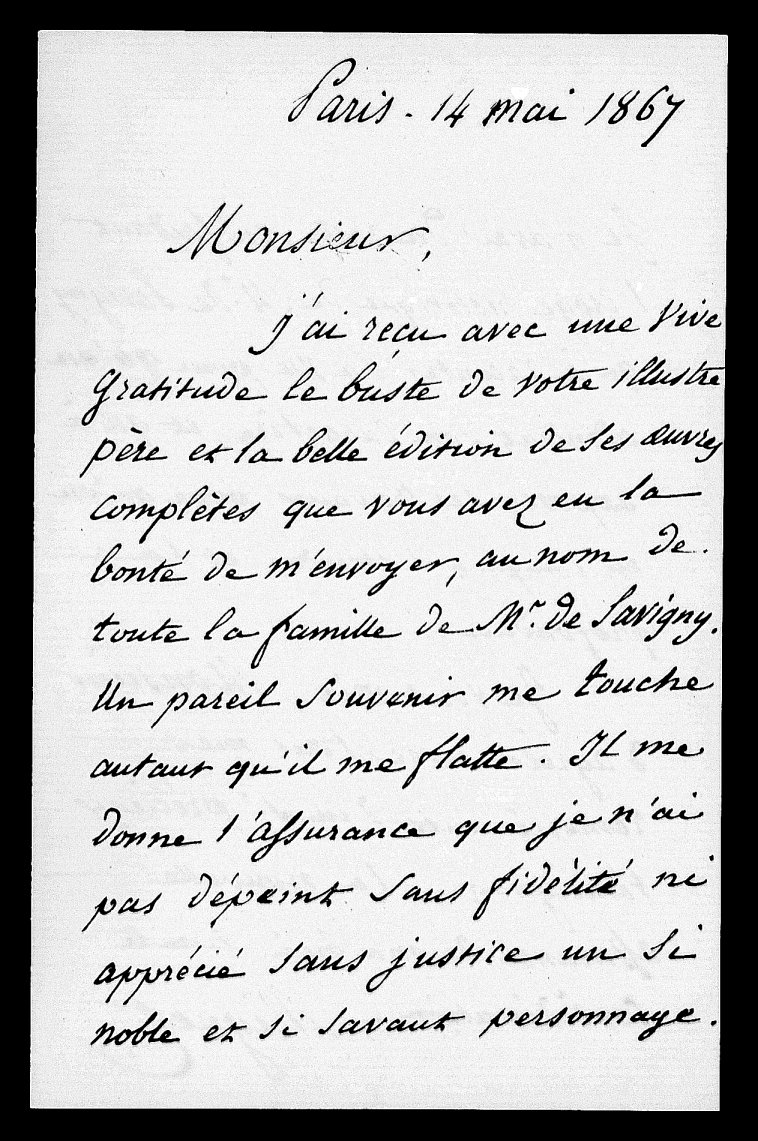 Paris - 14 mai 1867
Monsieur,
j'ai reçu avec une vive
gratitude le buste de votre illustre
père et la belle édition de ses œuvres
complètes que vous avez eu la
bonté de m'envoyer, au nom de
toute la famille de Mr. de Savigny.
Un pareil souvenir me touche
autant qu'il me flatte. Il me
donne l'assurance que je n'ai
pas dépeint sans fidélité ni
apprécié sans justice un si
noble et si savant personnage.